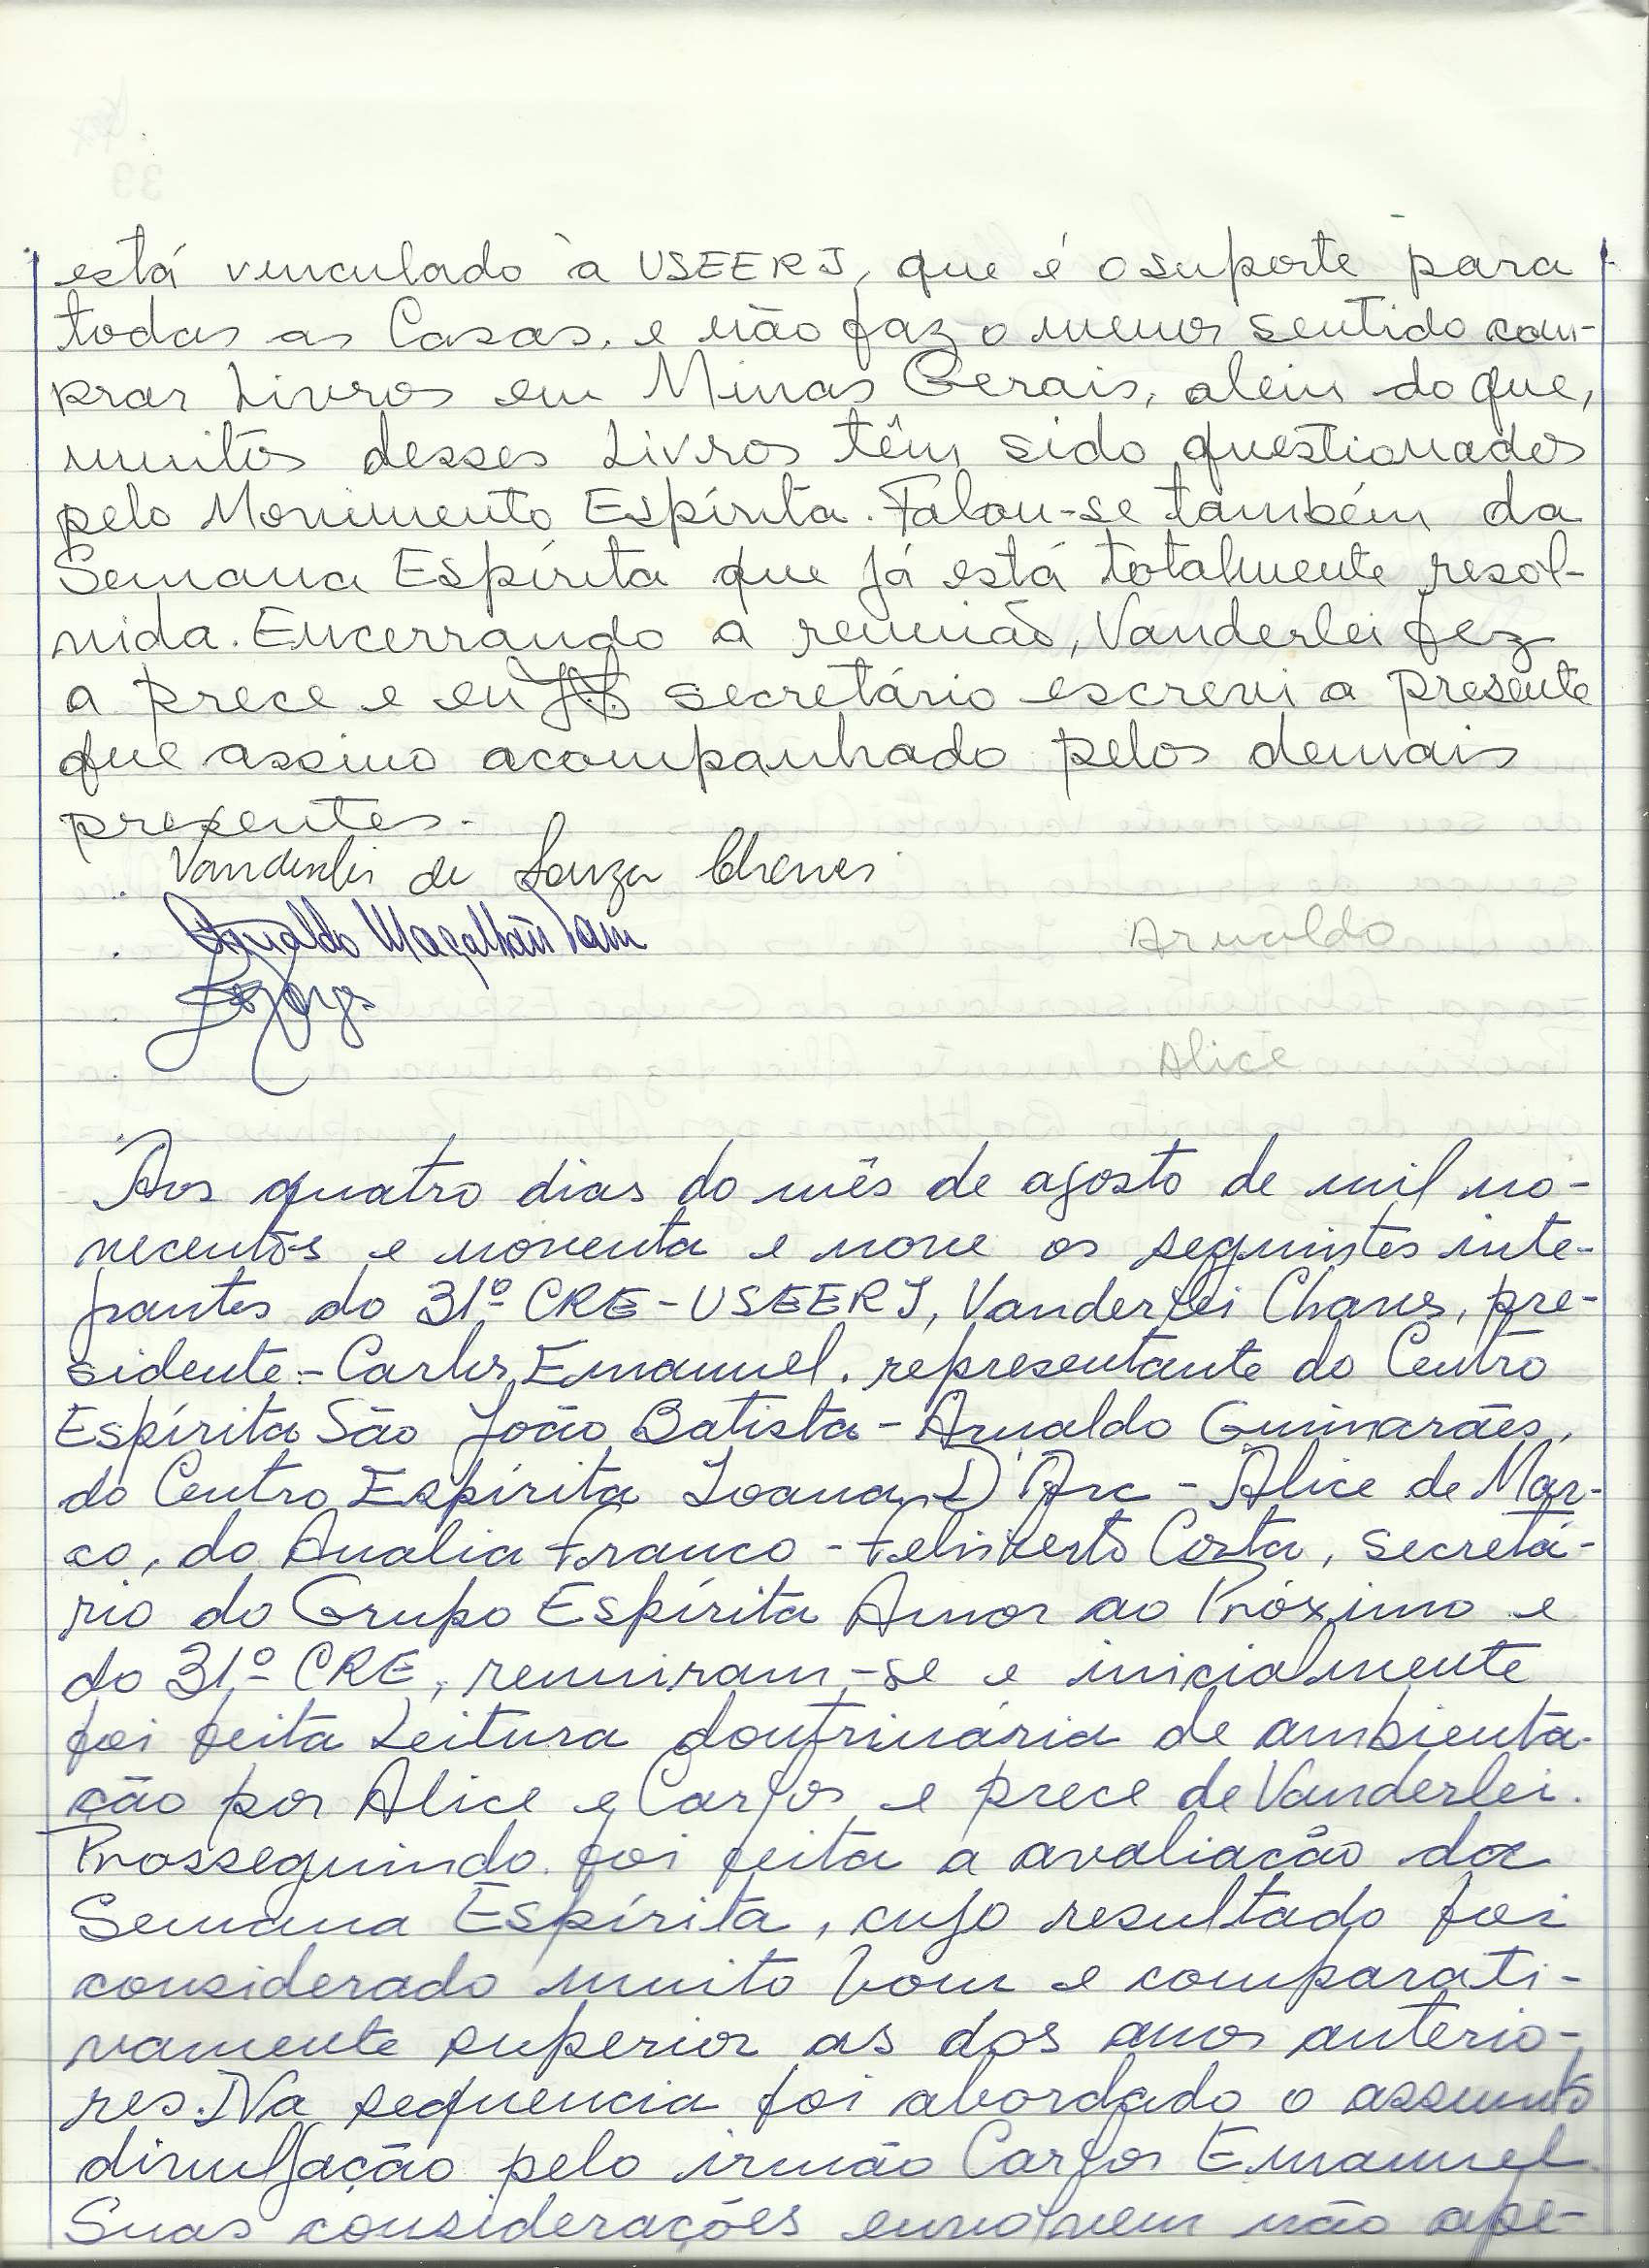 está vinculado à USEERJ, que é o suporte para
todas as Casas, e não faz o menor sentido com-
prar Livros em Minas Gerais, além do que,
muitos desses Livros têm sido questionados
pelo Movimento Espírita. Falou-se também da
Semana Espírita que já está totalmente resol-
vida. Encerrando a reunião, Vanderlei fez
a prece e eu secretário escrevi a presente
que assino acompanhado pelos demais
presentes.
Vanderlei de Souza Chaves
Magalhães
Arnaldo
Alice
Aos quatro dias do mês de agosto de mil no-
vecentos e noventa e nove os seguintes inte-
grantes do 31º CRE-USEERJ, Vanderlei Chaves, pre-
sidente - Carlos Emanuel, representante do Centro
Espírita São João Batista - Arnaldo Guimarães,
do Centro Espírita Joana D'Arc - Alice de Mar-
co, do Analia Franco - Felisberto Costa, secretá-
rio do Grupo Espírita Amor ao Próximo e
do 31º CRE, reuniram-se e inicialmente
foi feita Leitura doutrinária de ambienta-
ção por Alice e Carlos e prece de Vanderlei.
Prosseguindo foi feita a avaliação da
Semana Espírita, cujo resultado foi
considerado muito bom e comparati-
vamente superior as dos anos anterio-
res. Na sequencia foi abordado o assunto
divulgação pelo irmão Carlos Emanuel.
Suas considerações envolvem não ape-